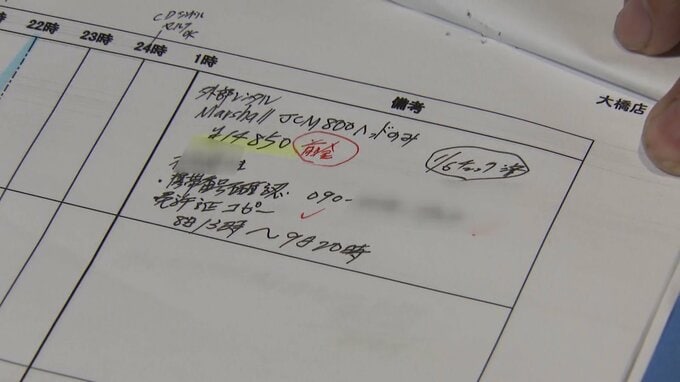 CDラジカセ
セルフ
OK
22時 23時 24時 1時 備考 大橋店
外部レンタル
Marshall JCM800ヘッドのみ
¥14850 前金
1/6チェック済
・携帯番号確認 090-
免許証コピー ✓
8日13時〜9日20時